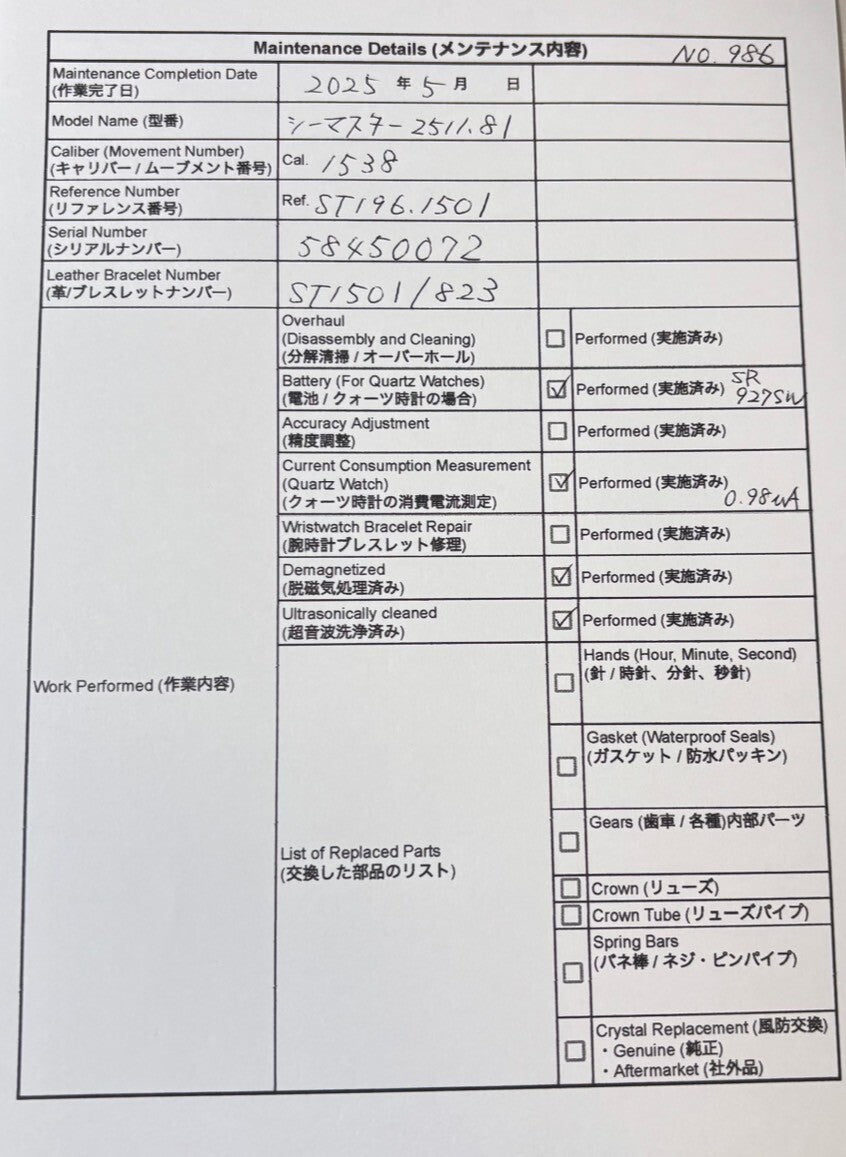 Maintenance Details (メンテナンス内容) NO. 986
Maintenance Completion Date
(作業完了日)
2025 年 5 月 日
Model Name (型番)
シーマスター 2511.81
Caliber (Movement Number)
(キャリバー / ムーブメント番号)
Cal. 1538
Reference Number
(リファレンス番号)
Ref. ST196.1501
Serial Number
(シリアルナンバー)
58450072
Leather Bracelet Number
(革/ブレスレットナンバー)
ST1501/823
Work Performed (作業内容)
Overhaul
(Disassembly and Cleaning)
(分解清掃 / オーバーホール)
Performed (実施済み)
Battery (For Quartz Watches)
(電池 / クォーツ時計の場合)
Performed (実施済み) SR
927SW
Accuracy Adjustment
(精度調整)
Performed (実施済み)
Current Consumption Measurement
(Quartz Watch)
(クォーツ時計の消費電流測定)
Performed (実施済み)
0.98uA
Wristwatch Bracelet Repair
(腕時計ブレスレット修理)
Performed (実施済み)
Demagnetized
(脱磁気処理済み)
Performed (実施済み)
Ultrasonically cleaned
(超音波洗浄済み)
Performed (実施済み)
List of Replaced Parts
(交換した部品のリスト)
Hands (Hour, Minute, Second)
(針 / 時針、分針、秒針)
Gasket (Waterproof Seals)
(ガスケット / 防水パッキン)
Gears (歯車 / 各種)内部パーツ
Crown (リューズ)
Crown Tube (リューズパイプ)
Spring Bars
(バネ棒 / ネジ・ピンパイプ)
Crystal Replacement (風防交換)
・Genuine (純正)
・Aftermarket (社外品)